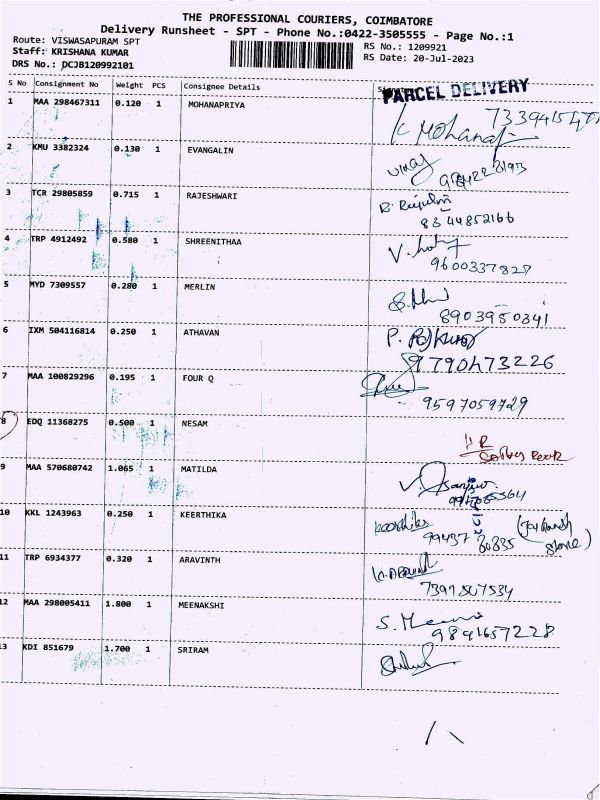 THE PROFESSIONAL COURIERS, COIMBATORE
Delivery Runsheet - SPT - Phone No.:0422-3505555 - Page No.:1
Route: VISWASAPURAM SPT
RS No.: 1209921
Staff: KRISHANA KUMAR
RS Date: 20-Jul-2023
DRS No.: DCJB120992101
S No Consignment No Weight PCS Consignee Details
PARCEL DELIVERY
1 MAA 298467311 0.120 1 MOHANAPRIYA
K Mohana
2 KMU 3382324 0.130 1 EVANGALIN
3 TCR 29805859 0.715 1 RAJESHWARI
8344852166
4 TRP 4912492 0.580 1 SHREENITHAA
9600337827
5 MYD 7309557 0.280 1 MERLIN
8903950341
6 IXM 504116814 0.250 1 ATHAVAN
9790473226
7 MAA 100829296 0.195 1 FOUR Q
9597059729
8 EDQ 11368275 0.500 1 NESAM
9 MAA 570680742 1.065 1 MATILDA
10 KKL 1243963 0.250 1 KEERTHIKA
Keerthika
11 TRP 6934377 0.320 1 ARAVINTH
7397807534
12 MAA 298005411 1.800 1 MEENAKSHI
9841657228
13 KDI 851679 1.700 1 SRIRAM